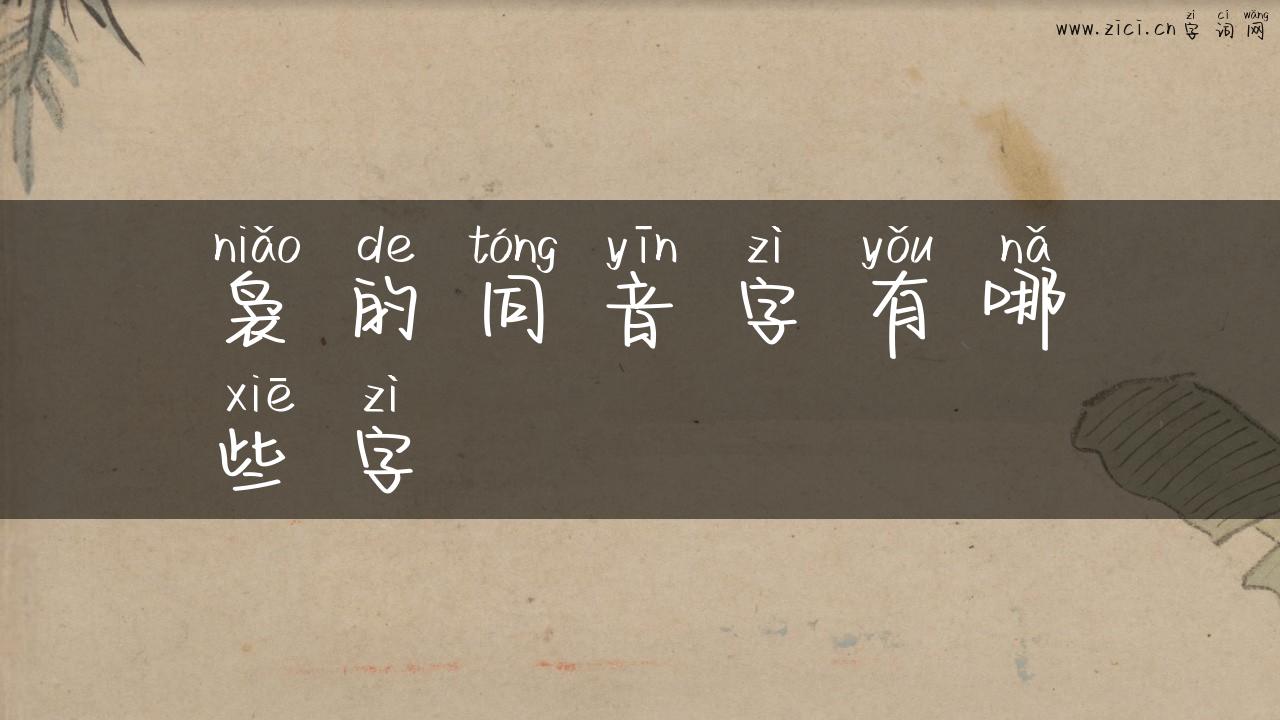 zì cí wǎng
www.zīcí.cn 字词网
niǎo de tóng yīn zì yǒu nǎ
袅的同音字有哪
xiē zì
些字